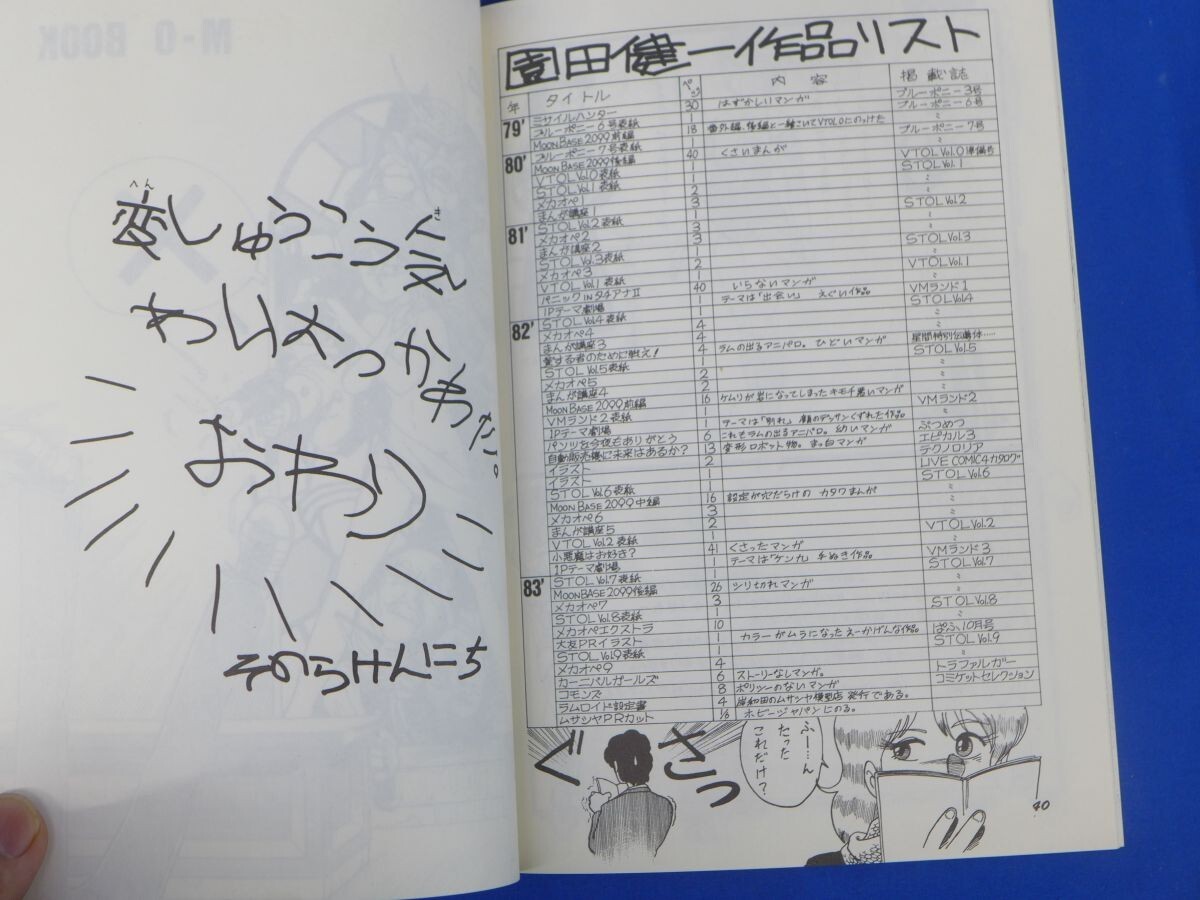 M-O BOOK
変しゅうこう気
へん
き
わりよっかめだ。
おわり
そのらけんにち
園田健一作品リスト
年 タイトル ページ 内容 掲載誌
79' ミサイルハンター 30 はずかしいマンガ ブルーポニー3号
ブルーポニー6号表紙 1 ブルーポニー6号
MOON BASE 2099前編 18 番外編、後編と一緒さいてVTOL0にのっけた 〃
ブルーポニー7号表紙 1 ブルーポニー7号
80' MOON BASE 2099後編 40 くさいまんが VTOL Vol.0準備号
VTOL Vol.0表紙 1 〃
STOL Vol.1表紙 1 STOL Vol.1
メカオペ1 2 〃
まんが講座1 3 〃
81' STOL Vol.2表紙 1 STOL Vol.2
メカオペ2 3 〃
まんが講座2 3 〃
STOL Vol.3表紙 1 STOL Vol.3
メカオペ3 2 〃
VTOL Vol.1表紙 1 VTOL Vol.1
パニックINタチアナII 40 いらないマンガ 〃
1Pテーマ劇場 1 テーマは「出会い」 えぐい作品 VMランド1
82' STOL Vol.4表紙 1 STOL Vol.4
メカオペ4 4 〃
まんが講座3 4 〃
愛する者のために戦え! 4 ラムの出るアニパロ。ひどいマンガ 星間特別伝導体……
STOL Vol.5表紙 1 STOL Vol.5
メカオペ5 2 〃
まんが講座4 2 〃
MOON BASE 2099前編 16 ケムリが岩になってしまったキモチ悪いマンガ 〃
VMランド2表紙 1 VMランド2
1Pテーマ劇場 1 テーマは「別れ」 顔のデッサンくずれた作品 〃
パンツを今夜もありがとう 6 これぞラムの出るアニパロ。幼いマンガ ぶつめつ
自動販売機に未来はあるか? 13 変形ロボット物。まっ白マンガ エピカル3
イラスト 2 テクノロリア
イラスト 1 LIVE COMIC4カタログ
STOL Vol.6表紙 1 STOL Vol.6
MOON BASE 2099中編 16 設定が穴だらけのカタワまんが 〃
メカオペ6 3 〃
まんが講座5 2 〃
VTOL Vol.2表紙 1 VTOL Vol.2
小悪魔はお好き? 41 くさったマンガ 〃
1Pテーマ劇場 1 テーマは「ケンカ」 手ぬき作品 VMランド3
83' STOL Vol.7表紙 1 STOL Vol.7
MOON BASE 2099後編 26 シリきれマンガ 〃
メカオペ7 3 〃
STOL Vol.8表紙 1 STOL Vol.8
メカオペエクストラ 10 〃
大友PRイラスト 1 カラーがムラになったえーかげんな作品 ぱふ10月号
STOL Vol.9表紙 1 STOL Vol.9
メカオペ9 4 〃
カーニバルガールズ 6 ストーリーなしマンガ。 トラファルガー
コモンズ 8 ポリシーのないマンガ コミケットセレクション
ラムロイド設定書 4 岸和田のムサシヤ模型店発行である。
ムサシヤPRカット 1/6 ホビージャパンにのる。
ぐさっ
ふー…ん
たった
これだけ?
40